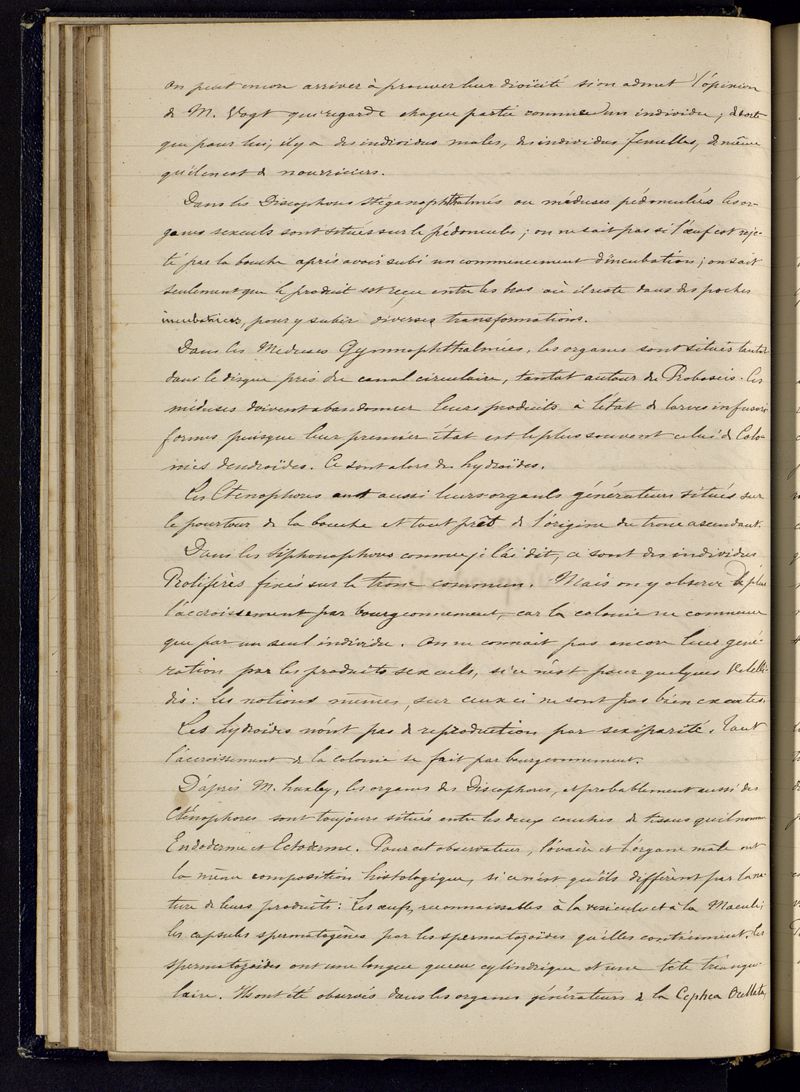 on peut encore arriver à prouver leur dioïcité si on admet l'opinion
de M. Vogt qui regarde chaque partie comme un individu ; de sorte
que pour lui, il y a des individus males, des individus femelles, de même
qu'il en est de nourriciers.
Dans les Discophores stéganophthalmés ou méduses pédonculées les or-
ganes sexuels sont situés sur le pédoncule ; on ne sait pas si l'œuf est reje-
té par la bouche après avoir subi un commencement d'incubation ; on sait
seulement que le produit est reçu entre les bras où il reste dans des poches
incubatrices, pour y subir diverses transformations.
Dans les Méduses Gymnophthalmées, les organes sont situés tantot
dans le disque près du canal circulaire, tantot autour du Proboscis. les
méduses doivent abandonner leurs produits à l'état de larves infusori-
formes puisque leur premier état est le plus souvent celui de Colo-
nies dendroïdes. Ce sont alors des hydroïdes.
Les Cténophores ont aussi leurs organes générateurs situés sur
le pourtour de la bouche et tout prêt de l'origine du tronc ascendant.
Dans les Siphonophores comme je l'ai dit, ce sont des individus
Prolifères fixés sur le tronc commun. Mais on y observe de plus
l'accroissement par bourgeonnement, car la colonie ne commence
que par un seul individu. On ne connait pas encore leur géné-
ration par les produits sexuels, si ce n'est pour quelques Velelli-
des : les notions mêmes, sur ceux ci ne sont pas bien exactes.
Les hydroïdes n'ont pas de reproduction par sexiparité. Tout
l'accroissement de la colonie se fait par bourgeonnement.
D'après M. huxley, les organes des Discophores, et probablement aussi des
Cténophores sont toujours situés entre les deux couches de tissus qu'il nomme
Endoderme et Ectoderme. Pour cet observateur, l'ovaire et l'organe male ont
la même composition histologique, si ce n'est qu'ils diffèrent par la na-
ture de leurs produits : Les œufs, reconnaissables à la vesicule et à la Macule ;
les capsules spermatogènes par les spermatozoïdes qu'elles contiennent. les
spermatozoïdes ont une longue queue cylindrique et une tête triangu-
laire. Ils ont été observés dans les organes générateurs de la Cephea Ocellata,